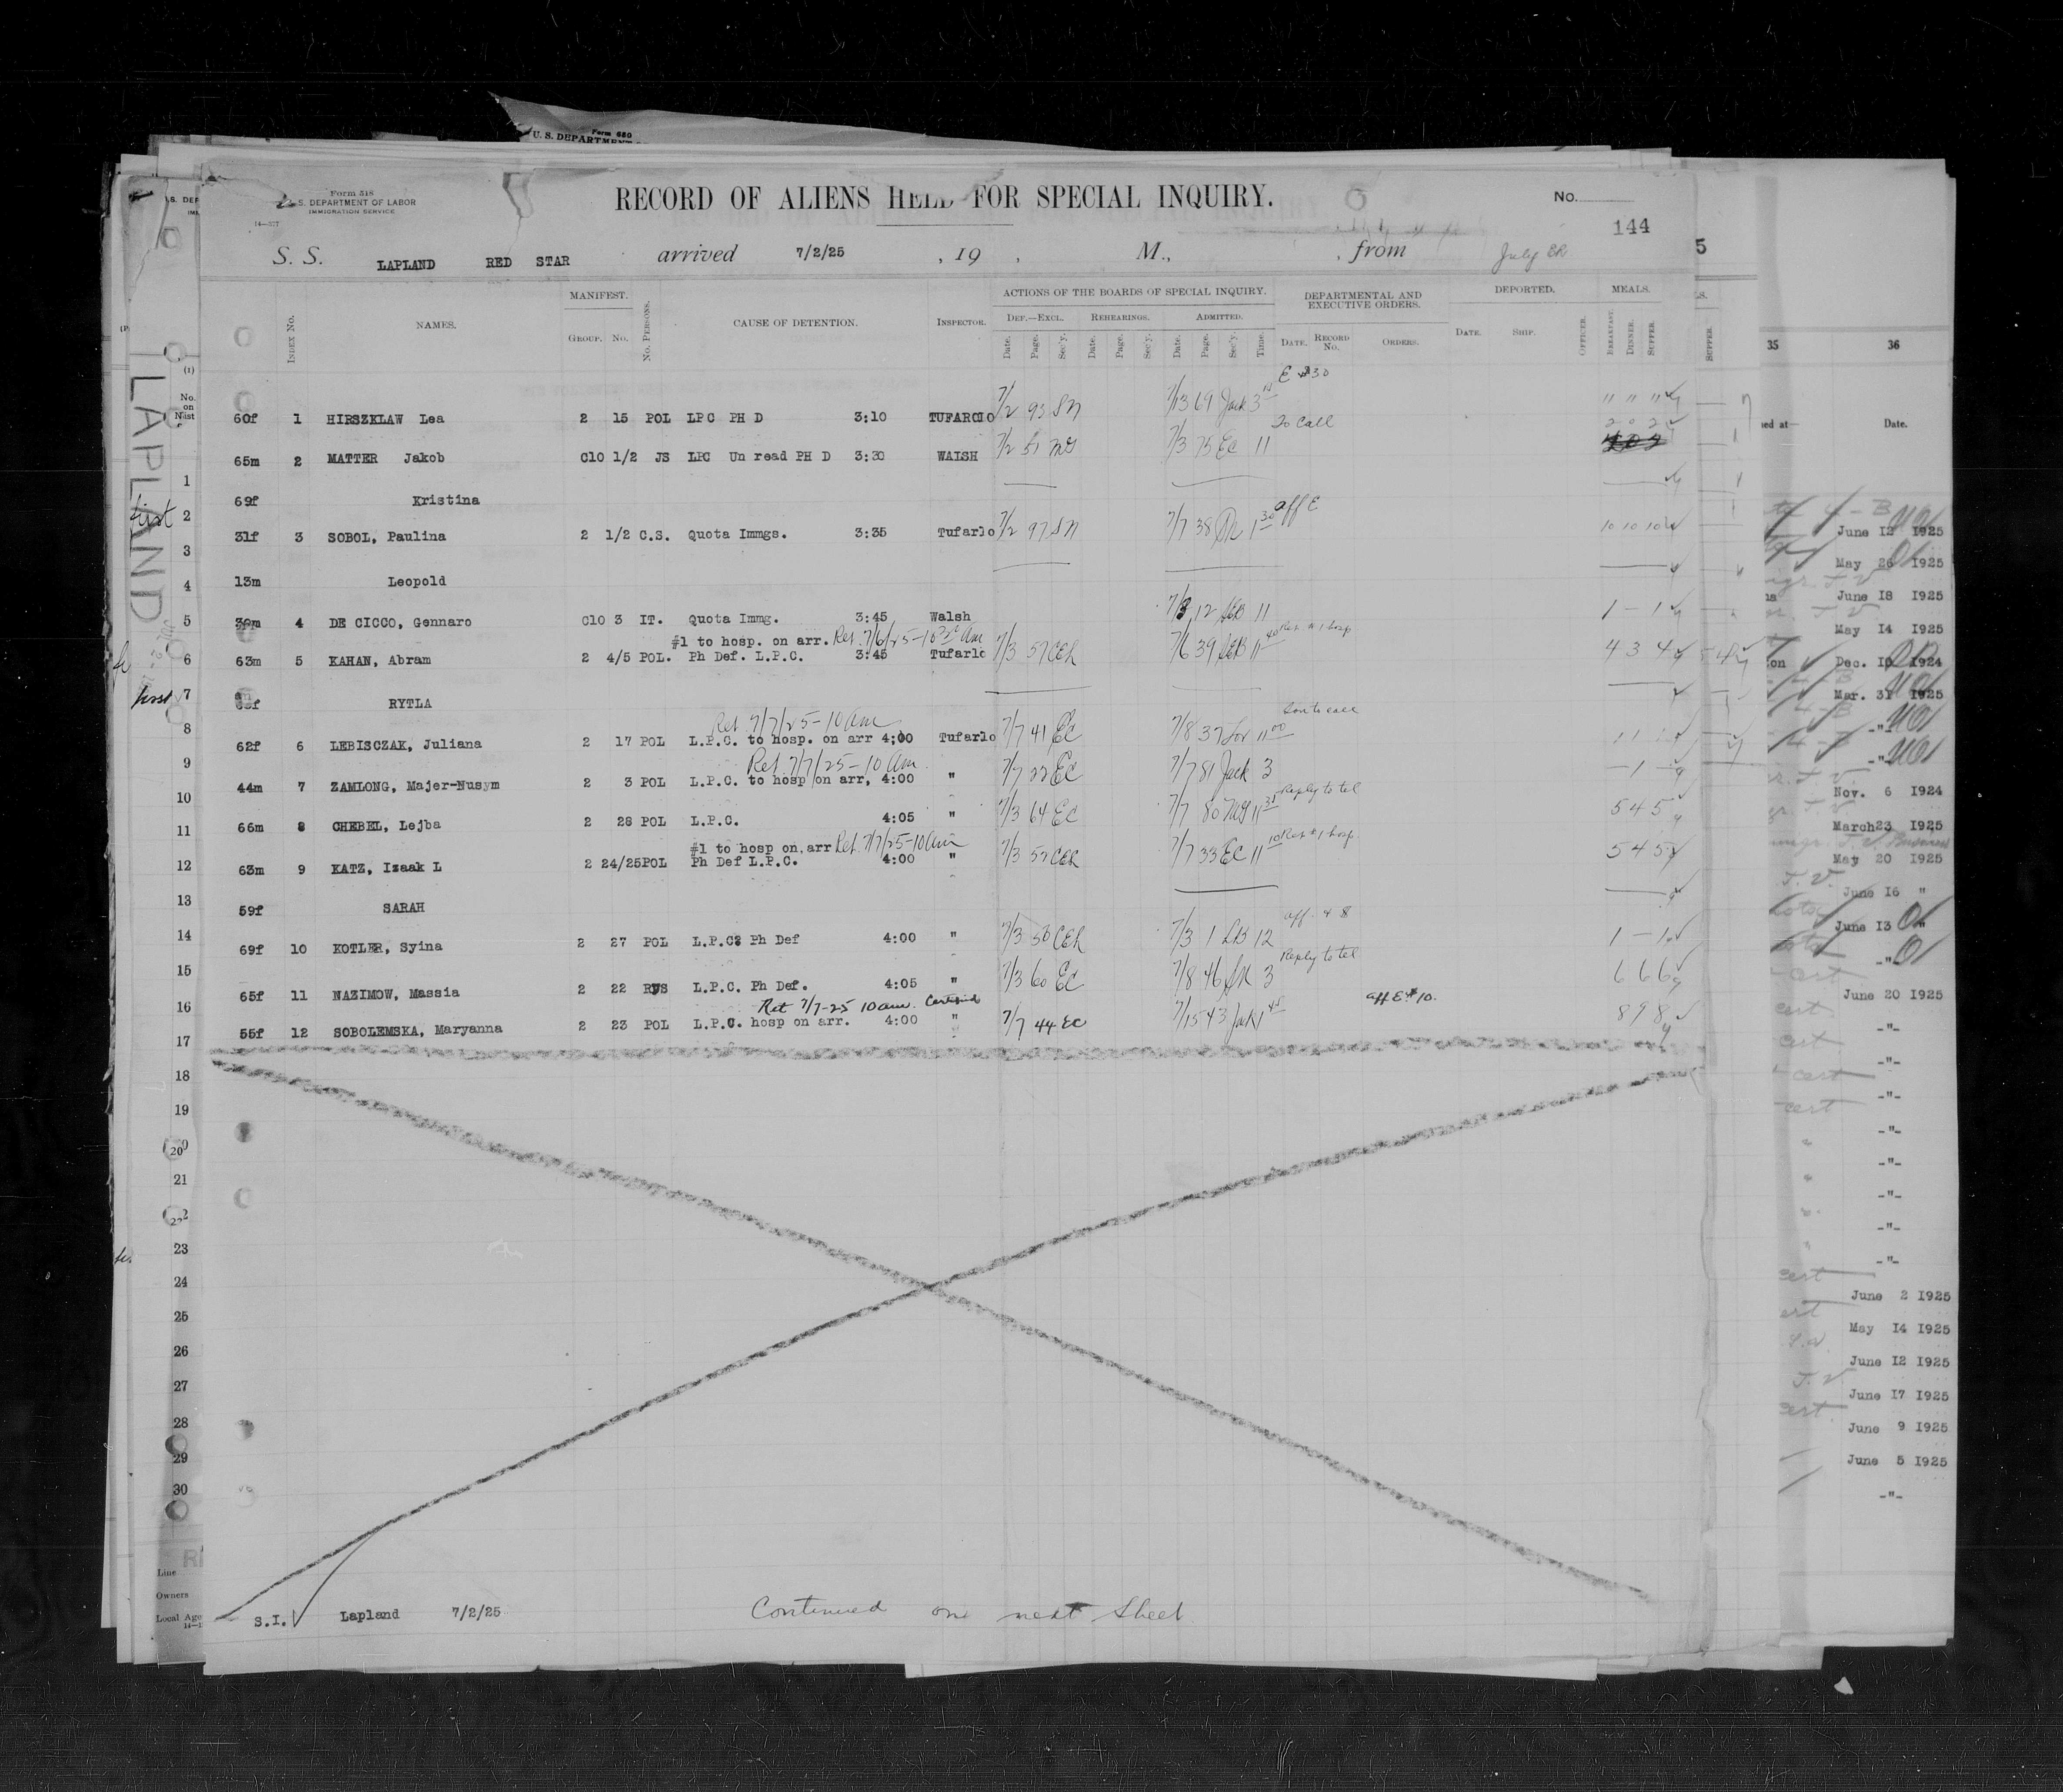 Form 630
U. S. DEPARTMENT
Form 518
U. S. DEPARTMENT OF LABOR
IMMIGRATION SERVICE
14—577
RECORD OF ALIENS HELD FOR SPECIAL INQUIRY.
No.
144
S. S. LAPLAND RED STAR arrived 7/2/25 , 19 , M., , from July
INDEX No. NAMES. MANIFEST. GROUP. No. No. PERSONS. CAUSE OF DETENTION. INSPECTOR. ACTIONS OF THE BOARDS OF SPECIAL INQUIRY. DEPARTMENTAL AND EXECUTIVE ORDERS. DEPORTED. MEALS.
DEF.—EXCL. REHEARINGS. ADMITTED.
Date. Page. Sec'y. Date. Page. Sec'y. Date. Page. Sec'y. Time. DATE. RECORD No. ORDERS. DATE. SHIP. OFFICER. BREAKFAST. DINNER. SUPPER.
60f 1 HIRSZKLAW Lea 2 15 POL LPC PH D 3:10 TUFARLO 7/2 93 SN 7/13 69 Jack 3 E #30
65m 2 MATTER Jakob C10 1/2 JS LPC Un read PH D 3:30 WALSH 7/2 51 7/3 75 EC 11 To Call
69f Kristina
31f 3 SOBOL, Paulina 2 1/2 C.S. Quota Immgs. 3:35 Tufarlo 7/2 97 SN 7/7 38 1 30 aff E 10 10 10
13m Leopold
30m 4 DE CICCO, Gennaro C10 3 IT. Quota Immg. 3:45 Walsh 7/3 12 11 1 – 1
#1 to hosp. on arr. Ret 7/6/25-10 30 am
63m 5 KAHAN, Abram 2 4/5 POL. Ph Def. L.P.C. 3:45 Tufarlo 7/3 57 CER 7/6 39 11 40 Ret #1 hosp 4 3 4
RYTLA
Ret 7/7/25-10 am
62f 6 LEBISCZAK, Juliana 2 17 POL L.P.C. to hosp. on arr 4:00 Tufarlo 7/7 41 EC 7/8 37 11 00 Son to call
Ret 7/7/25-10 am
44m 7 ZAMLONG, Majer-Nusym 2 3 POL L.P.C. to hosp on arr, 4:00 " 7/7 22 EC 7/7 81 Jack 3 – 1 –
66m 8 CHEBEL, Lejba 2 28 POL L.P.C. 4:05 " 7/3 64 EC 7/7 80 11 35 Reply to tel 5 4 5
#1 to hosp on arr Ret 7/7/25-10am
63m 9 KATZ, Izaak L 2 24/25POL Ph Def L.P.C. 4:00 " 7/3 52 CER 7/7 33 EC 11 10 Ret #1 hosp. 5 4 5
59f SARAH
69f 10 KOTLER, Syina 2 27 POL L.P.C: Ph Def 4:00 " 7/3 50 CER 7/3 1 12 1 – 1
65f 11 NAZIMOW, Massia 2 22 RUS L.P.C. Ph Def. 4:05 " 7/3 60 EC 7/8 46 3 Reply to tel 6 6 6
Ret 7/7-25 10am. Certified
55f 12 SOBOLEMSKA, Maryanna 2 23 POL L.P.C. hosp on arr. 4:00 " 7/7 44 EC 7/15 43 Jack 1 45 aff E #10. 8 9 8
S.I. Lapland 7/2/25
Continued on next Sheet
LAPLAND
(1)
No. on List
1
first 2
3
4
5
6
first 7
8
9
10
11
12
13
14
15
16
17
18
19
20
21
22
23
24
25
26
27
28
29
30
Line
Owners
Local Age
SUPPER.
35 36
Date.
June 12 1925
May 26 1925
June 18 1925
May 14 1925
Dec. 10 1924
Mar. 31 1925
-"-
-"-
Nov. 6 1924
March 23 1925
May 20 1925
June 16 "
June 13 "
-"-
June 20 1925
-"-
-"-
-"-
-"-
-"-
-"-
-"-
-"-
June 2 1925
May 14 1925
June 12 1925
June 17 1925
June 9 1925
June 5 1925
-"-